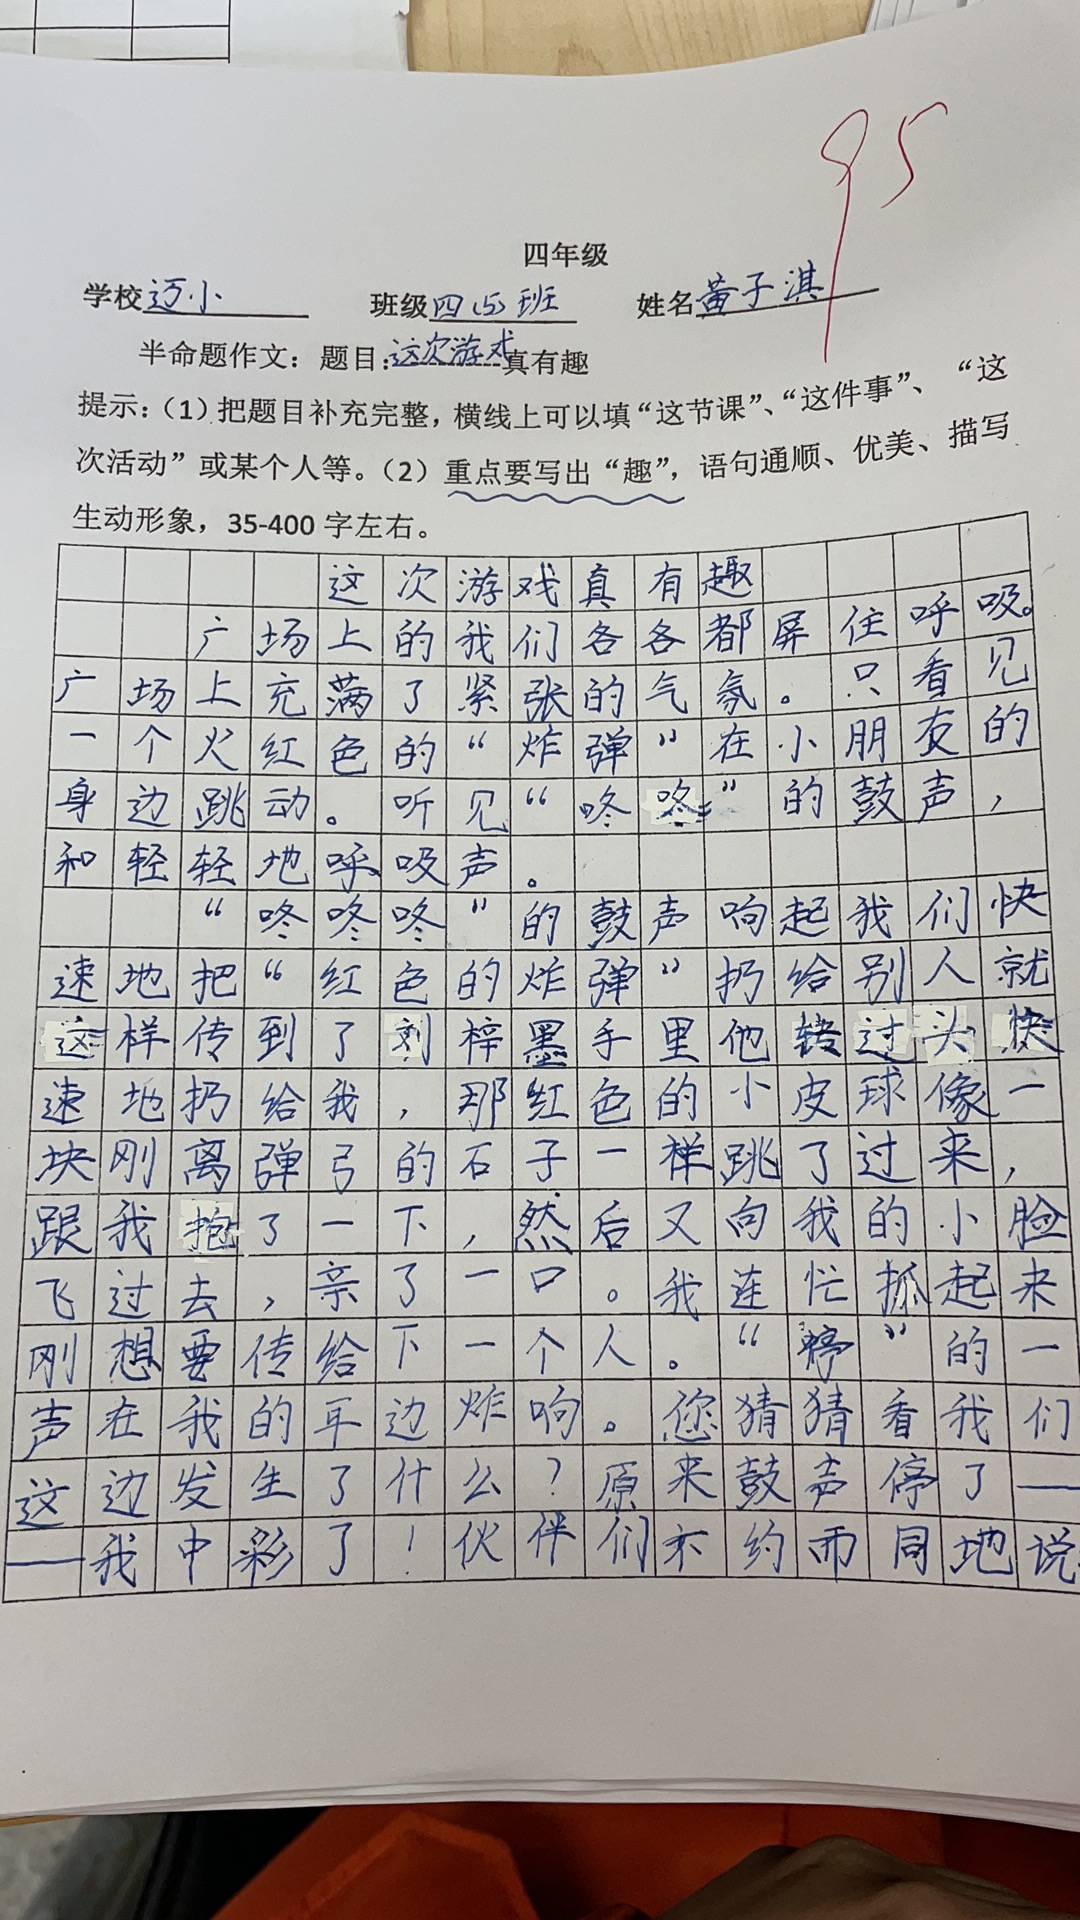 95
四年级
学校 迈小 班级 四(5)班 姓名 黄子淇
半命题作文：题目:这次游戏真有趣
提示：（1）把题目补充完整，横线上可以填“这节课”、“这件事”、“这
次活动”或某个人等。（2）重点要写出“趣”，语句通顺、优美、描写
生动形象，35-400 字左右。
这次游戏真有趣
广场上的我们各各都屏住呼吸。
广场上充满了紧张的气氛。只看见
一个火红色的“炸弹”在小朋友的
身边跳动。听见“咚咚”的鼓声，
和轻轻地呼吸声。
“咚咚咚”的鼓声响起我们快
速地把“红色的炸弹”扔给别人就
这样传到了刘梓墨手里他转过头快
速地扔给我，那红色的小皮球像一
块刚离弹弓的石子一样跳了过来，
跟我抱了一下，然后又向我的小脸
飞过去，亲了一口。我连忙抓起来
刚想要传给下一个人。“停”的一
声在我的耳边炸响。您猜猜看我们
这边发生了什么？原来鼓声停了—
—我中彩了！伙伴们不约而同地说: